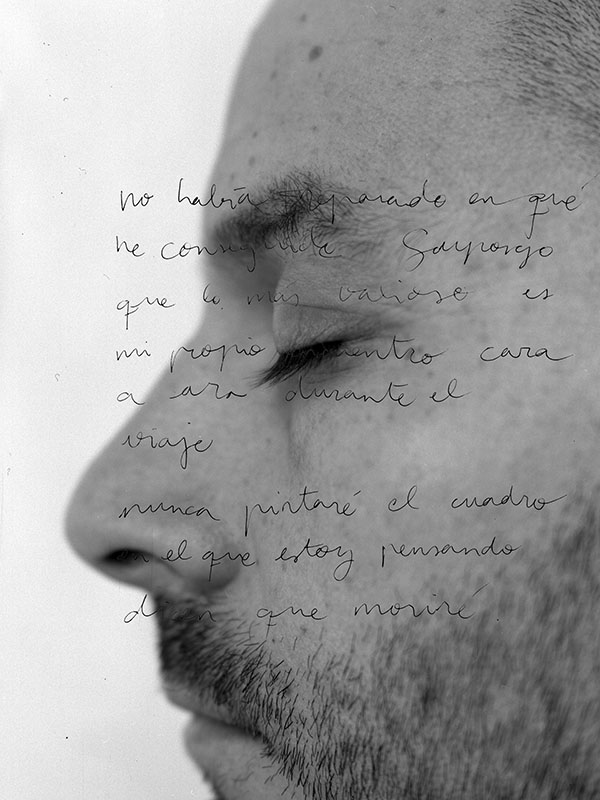 no había reparado en qué
he conseguido Supongo
que lo más valioso es
mi propio encuentro cara
a cara durante el
viaje
nunca pintaré el cuadro
en el que estoy pensando
dicen que moriré.